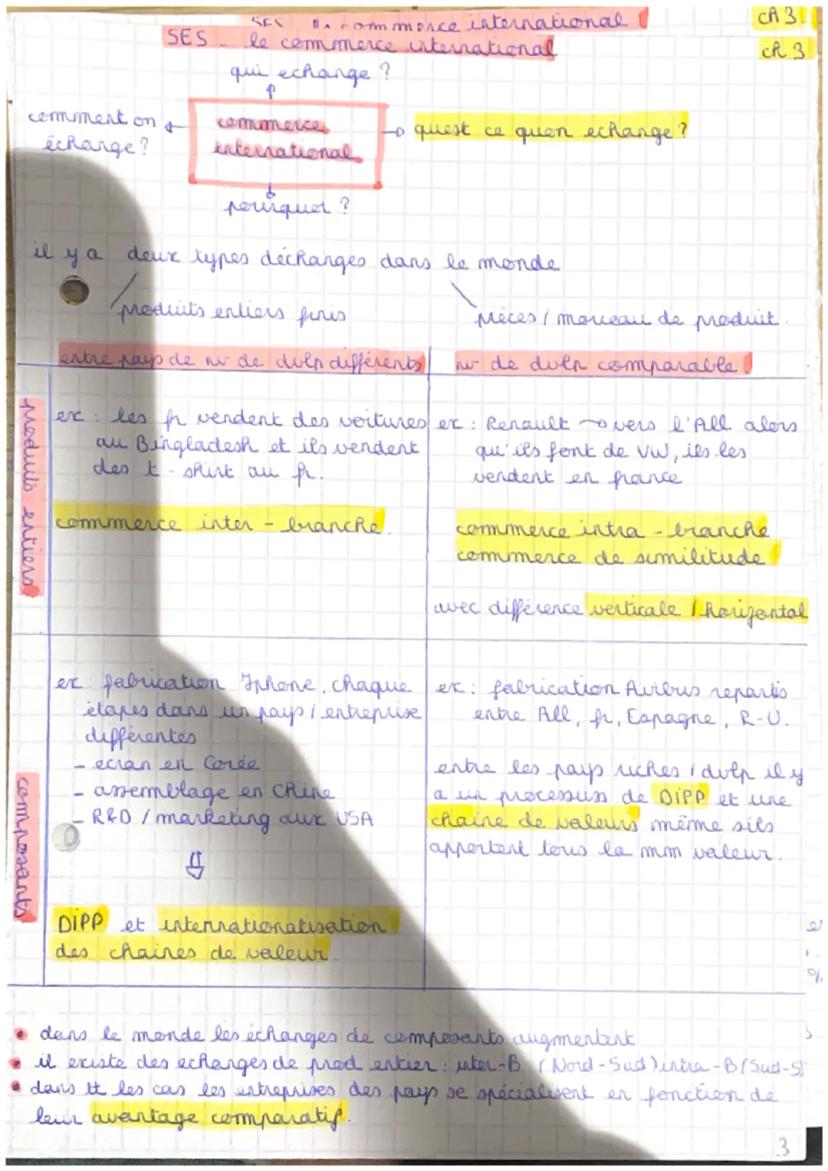 SES commerce international ch 3
SES - le commerce international ch 3
qui echange ?
comment on échange ?
commerce international
quest ce quon echange ?
pourquoi ?
il y a deux types déchanges dans le monde
produits entiers finis
pièces / morceau de produit.
entre pays de nv de dvlp différents
nv de dvlp comparable
produits entiers
ex : les fr vendent des voitures
au Bingladesh et ils vendent
des t-shirt au fr.
commerce inter-branche.
ex : Renault → vers l'All alors
qu'ils font de VW, ils les
vendent en france
commerce intra-branche
commerce de similitude
avec différence verticale / horizontal
composants
ex : fabrication Iphone, chaque
étapes dans un pays / entreprise
différentes
- écran en Corée
- assemblage en Chine
- R&D / marketing aux USA
⇓
DiPP et internationatisation
des chaines de valeur.
ex : fabrication Airbus repartis
entre All, fr, Espagne, R-U.
entre les pays riches / dvlp il y
a un processus de DiPP et une
chaine de valeurs même sils
apportent tous la mm valeur.
• dans le monde les échanges de composants augmentent
• il existe des echanges de prod entier : inter-B (Nord-Sud) intra-B (Sud-S)
• dans tt les cas les entreprises des pays se spécialisent en fonction de
leur avantage comparatif.
3